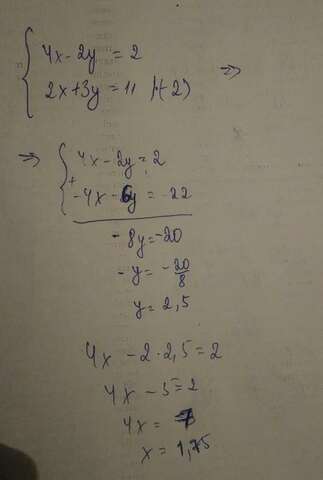 4x - 2y = 2
2x + 3y = 11 |·(-2) ⇒
⇒ 4x - 2y = 2
+
-4x - 6y = -22
- 8y = -20
- y = - 20/8
y = 2,5
4x - 2 · 2,5 = 2
4x - 5 = 2
4x = 7
x = 1,75